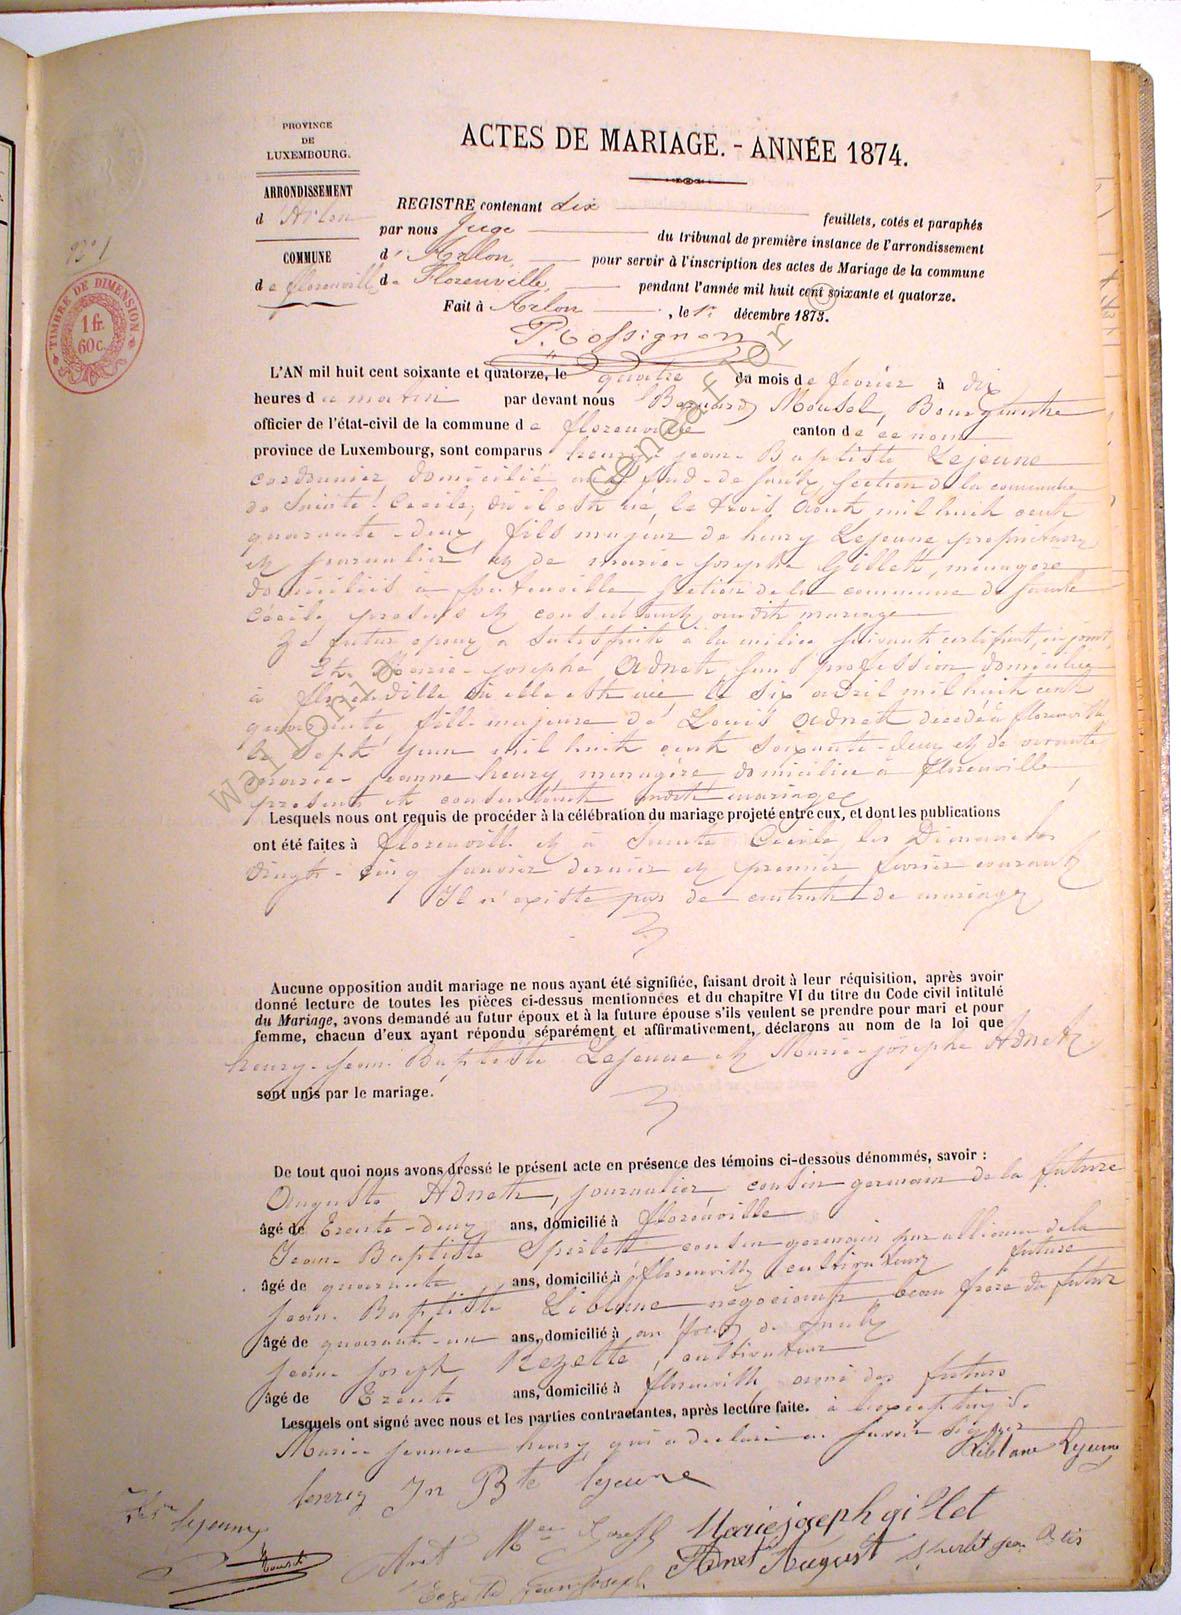 PROVINCE
DE
LUXEMBOURG.
ARRONDISSEMENT
d'Arlon
COMMUNE
de florenville
N° 1
TIMBRE DE DIMENSION
1 fr.
60 c.
ACTES DE MARIAGE. - ANNÉE 1874.
REGISTRE contenant dix feuillets, cotés et paraphés
par nous Juge du tribunal de première instance de l'arrondissement
d'Arlon, pour servir à l'inscription des actes de Mariage de la commune
de Florenville, pendant l'année mil huit cent soixante et quatorze.
Fait à Arlon, le 1r décembre 1873.
L'AN mil huit cent soixante et quatorze, le quatre du mois de février à dix
heures du matin par devant nous Bernard Mousel, Bourgmestre
officier de l'état-civil de la commune de florenville canton de ce nom
province de Luxembourg, sont comparus henry-jean-Baptiste Lejeune
cordonnier, domicilié au fond-de-saulx, section de la commune
de Sainte Cécile, où il est né, le trois août mil huit cent
quarante-deux, fils majeur de henry Lejeune propriétaire
et journalier et de marie-josephe Gillett, ménagère
domiciliés à fontenoille section de la commune de Sainte
Cécile, présents et consentants audit mariage
Le futur époux a satisfait à la milice suivant certificat, ci-joint,
Et Marie-josephe Adnet sans profession domiciliée
à florenville où elle est née, le six avril mil huit cent
quarante, fille majeure de Louis Adnet décédé à florenville
le sept juin mil huit cent soixante-deux et de vivante
marie-jeanne henry, ménagère domiciliée à florenville
présente et consentante audit mariage
Lesquels nous ont requis de procéder à la célébration du mariage projeté entre eux, et dont les publications
ont été faites à florenville et à Sainte Cécile, les Dimanches
vingt-cinq janvier dernier et premier février courant
Il n'existe pas de contrat de mariage
Aucune opposition audit mariage ne nous ayant été signifiée, faisant droit à leur réquisition, après avoir
donné lecture de toutes les pièces ci-dessus mentionnées et du chapitre VI du titre du Code civil intitulé
du Mariage, avons demandé au futur époux et à la future épouse s'ils veulent se prendre pour mari et pour
femme, chacun d'eux ayant répondu séparément et affirmativement, déclarons au nom de la loi que
henry-jean-Baptiste Lejeune et Marie-josephe Adnet
sont unis par le mariage.
De tout quoi nous avons dressé le présent acte en présence des témoins ci-dessous dénommés, savoir :
Auguste Adnet, journalier cousin germain de la future
âgé de Trente-deux ans, domicilié à florenville
Jean Baptiste Spirlet cousin germain par alliance de la future
âgé de quarante ans, domicilié à florenville, cultivateur
Jean Baptiste Liblanc négociant, beau frère du futur
âgé de quarante-un ans, domicilié à au fond de saulx
Jean Joseph Rezette, cultivateur
âgé de Trente ans, domicilié à florenville ami des futurs
Lesquels ont signé avec nous et les parties contractantes, après lecture faite. à l'exception de
Marie-Jeanne henry qui a déclaré ne savoir signer
henry Jn Bte lejeune
lejeune
Mariejoseph gillet
Adnet August
Rezette jean joseph
Wallonia GeneaFlor ©